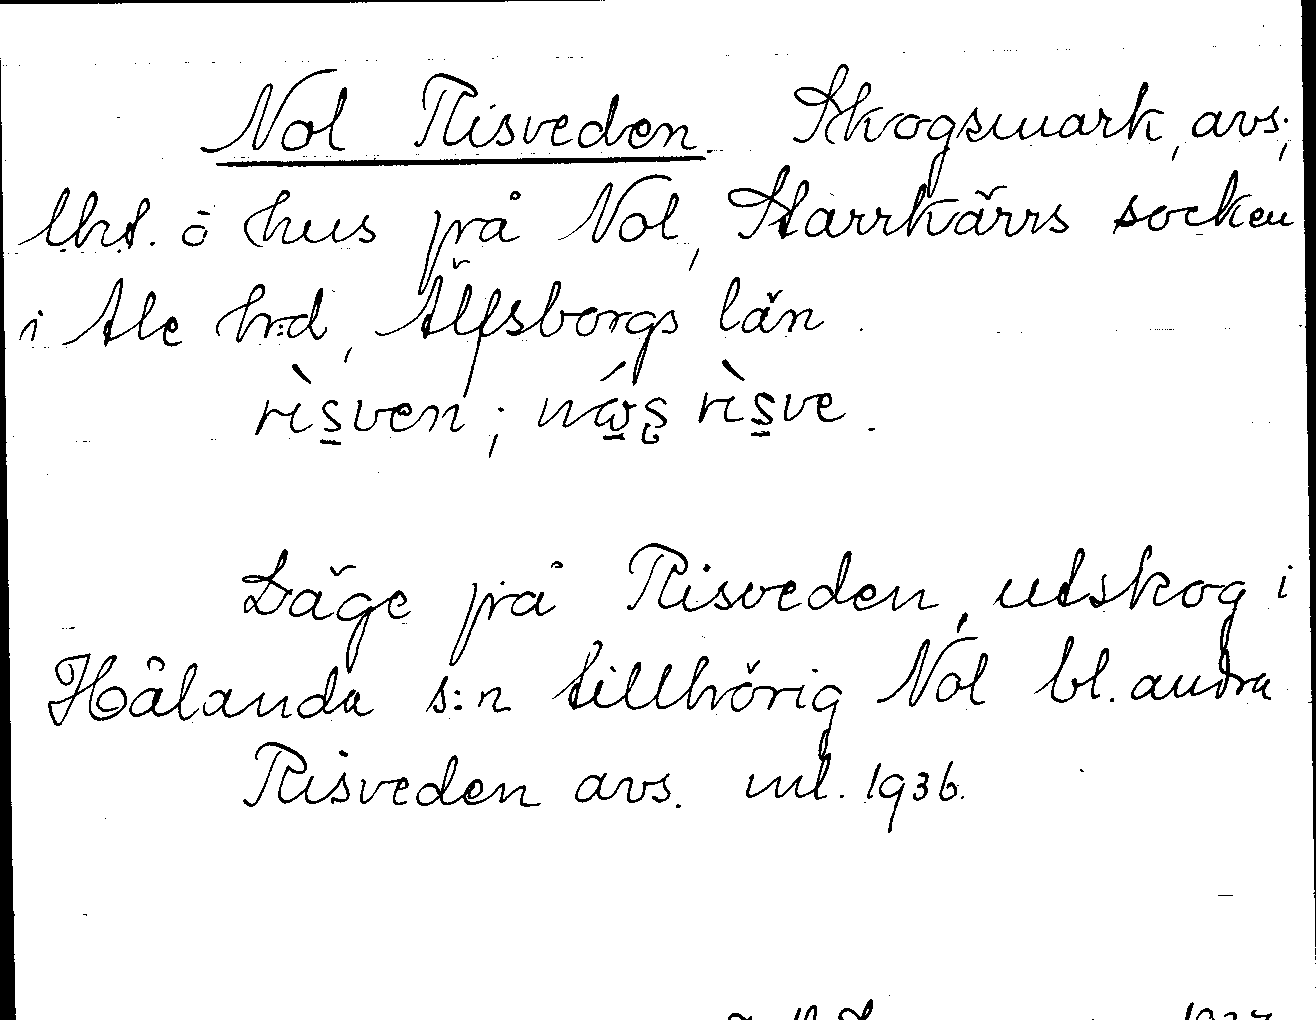 Nol Risveden. Skogsmark, avs.,
lht. o hus på Nol, Starrkärrs socken
i Ale h:d, Älfsborgs län.
rìs̱ven; nás rìs̱ve.
Läge på Risveden, utskog i
Hålanda s:n tillhörig Nol bl. andra
Risveden avs. ml. 1936.